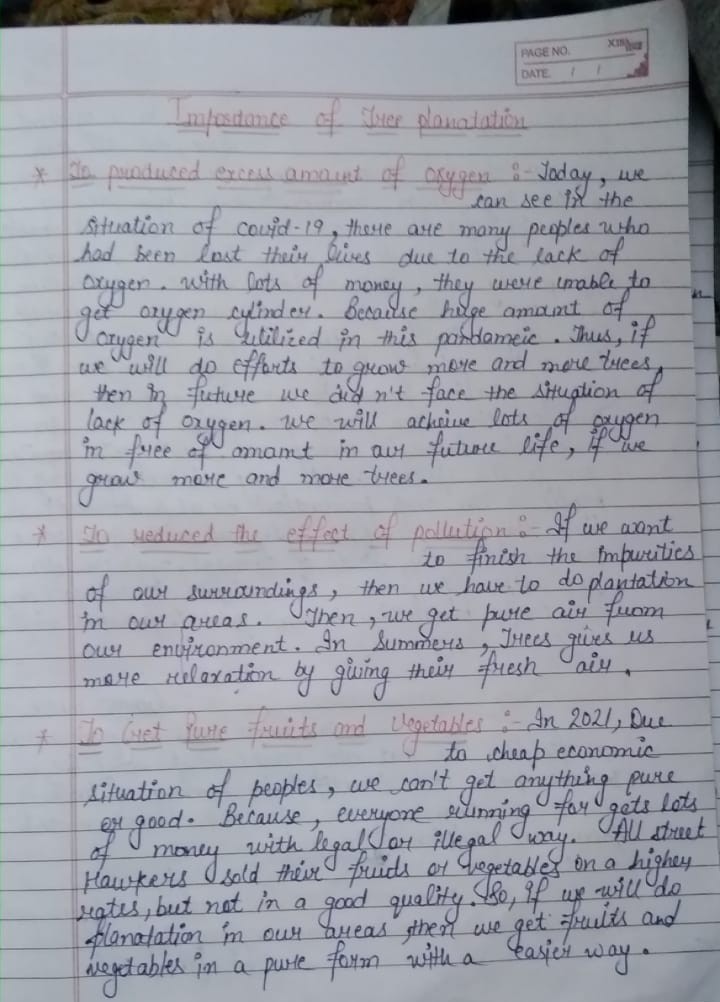 PAGE NO.
DATE / /
Importance of Tree planatation
* To produced excess amount of oxygen :- Today, we
can see in the
situation of covid-19, there are many peoples who
had been lost their lives due to the lack of
oxygen. with lots of money, they were unable to
get oxygen cylinder. Because huge amount of
oxygen is utilized in this pandameic. Thus, if
we will do efforts to grow more and more trees,
then in future we did n't face the situation of
lack of oxygen. we will acheive lots of oxygen
in free of amount in our future life, if we
grow more and more trees.
* To reduced the effect of pollution :- If we want
to finish the impurities
of our surroundings, then we have to do plantation
in our areas. Then, we get pure air from
our environment. In Summers, Trees gives us
more relaxation by giving their fresh air.
* To Get Pure fruits and vegetables :- In 2021, Due
to cheap economic
situation of peoples, we can't get anything pure
or good. Because, everyone running for gets lots
of money with legal or illegal way. All street
Hawkers sold their fruids or vegetables on a higher
rates, but not in a good quality. So, if we will do
planatation in our areas, then we get fruits and
vegetables in a pure form with a easier way.